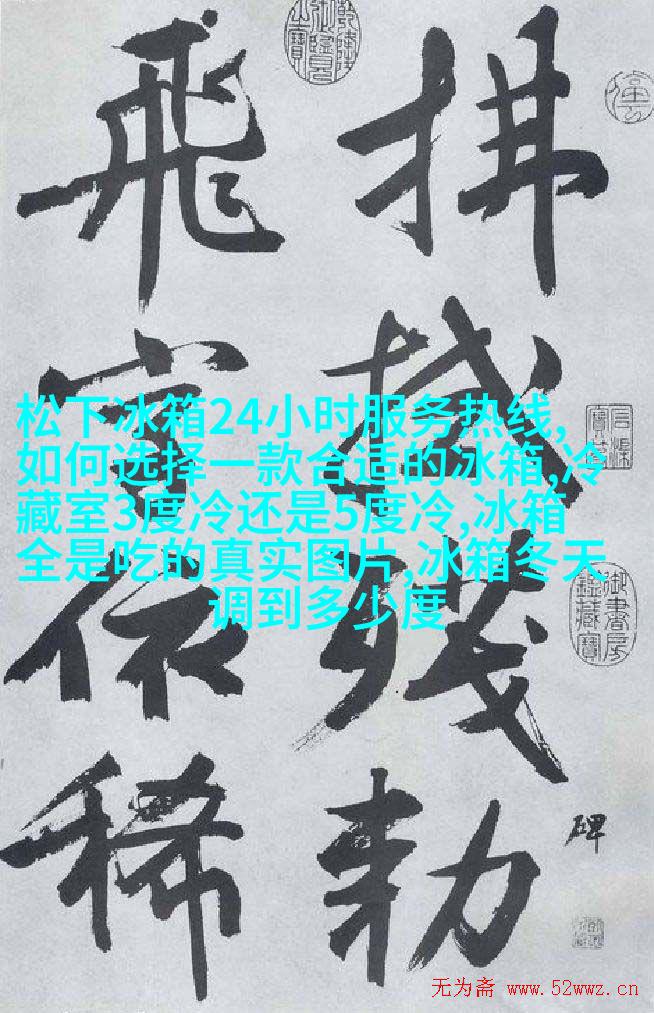 拂拭残勅
碑
飛字依稀
松下冰箱24小时服务热线,
如何选择一款合适的冰箱,冷
藏室3度冷还是5度冷,冰箱
全是吃的真实图片,冰箱冬天
调到多少度
石渠
寶笈
御書房
鑑藏寶
无为斋 www.52wwz.cn